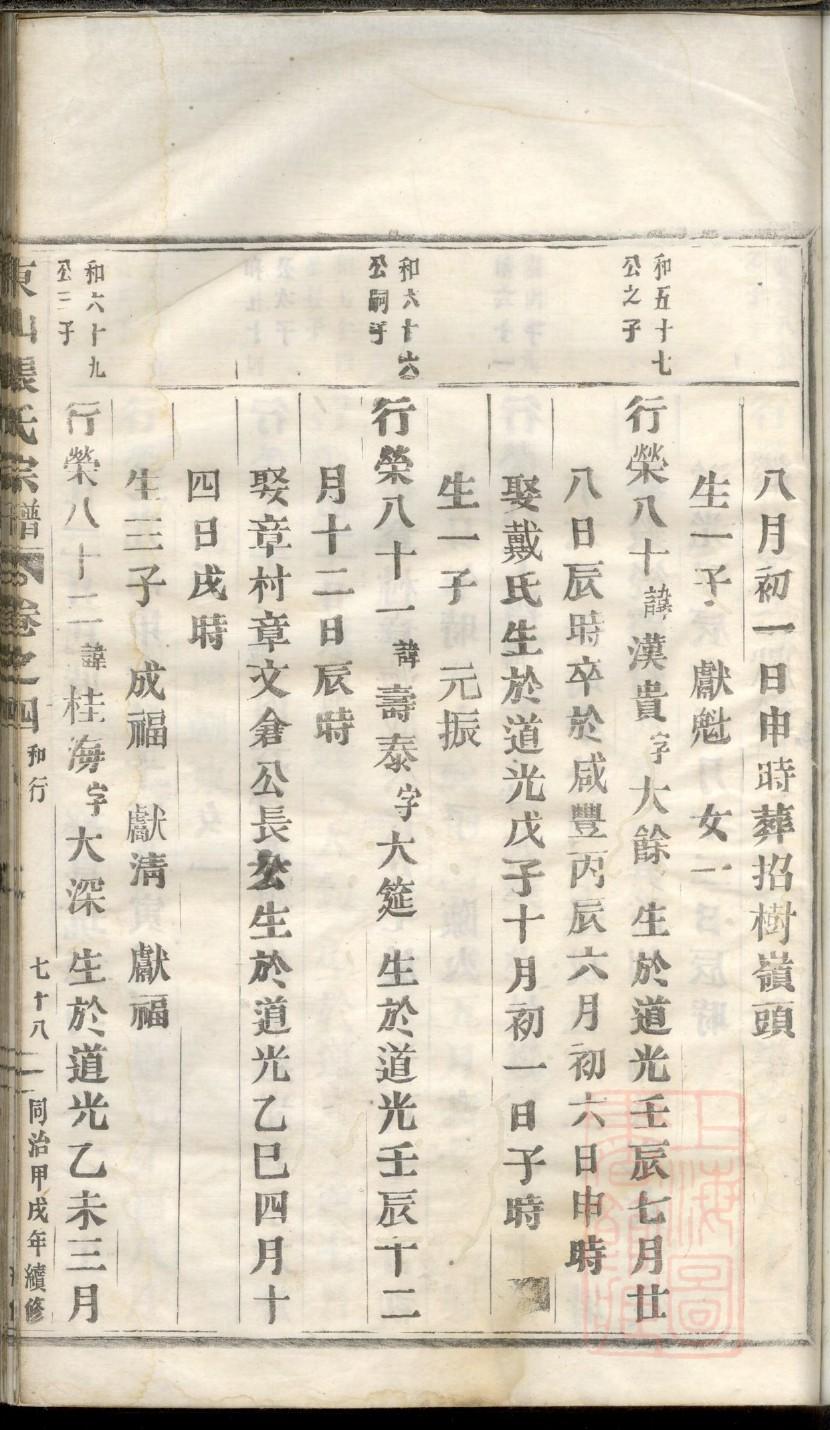 八月初一日申時葬招樹嶺頭
生一子 獻魁 女一
和五十七
公之子
行榮八十諱漢貴字大餘 生於道光壬辰七月廿
八日辰時卒於咸豐丙辰六月初六日申時
娶戴氏生於道光戊子十月初一日子時
生一子 元振
和六十六
公嗣子
行榮八十一諱壽泰字大筵 生於道光壬辰十二
月十二日辰時
娶章村章文倉公長女生於道光乙巳四月十
四日戌時
生三子 成福 獻清 獻福
和六十九
公三子
行榮八十二諱桂海字大深 生於道光乙未三月
東山張氏宗譜 卷之四 和行 七十八 同治甲戌年續修
上海圖書館藏